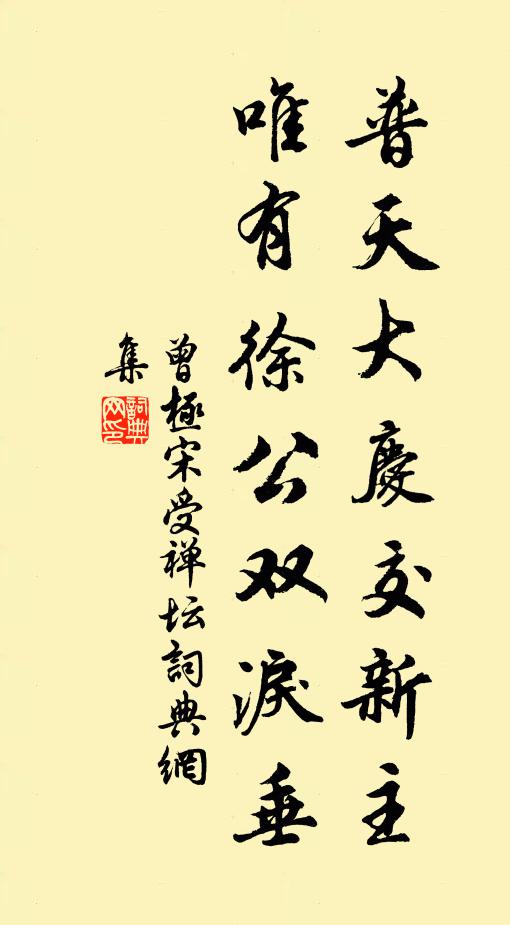 普天大慶交新主
唯有徐公双淚垂
曾極宋受禅坛詞典網
集
詞典網印